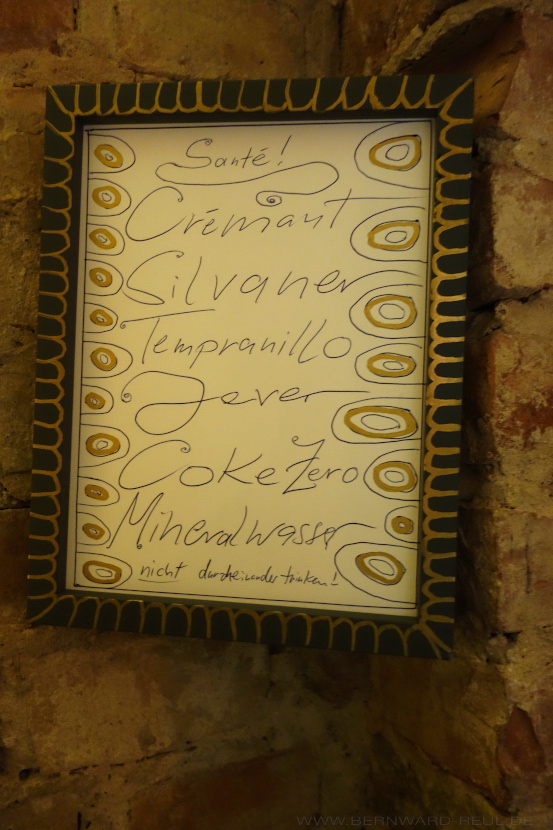 Santé!
Crémant
Silvaner
Tempranillo
Jever
Coke Zero
Mineralwasser
nicht durcheinander trinken!
WWW.BERNWARD-REUL.DE